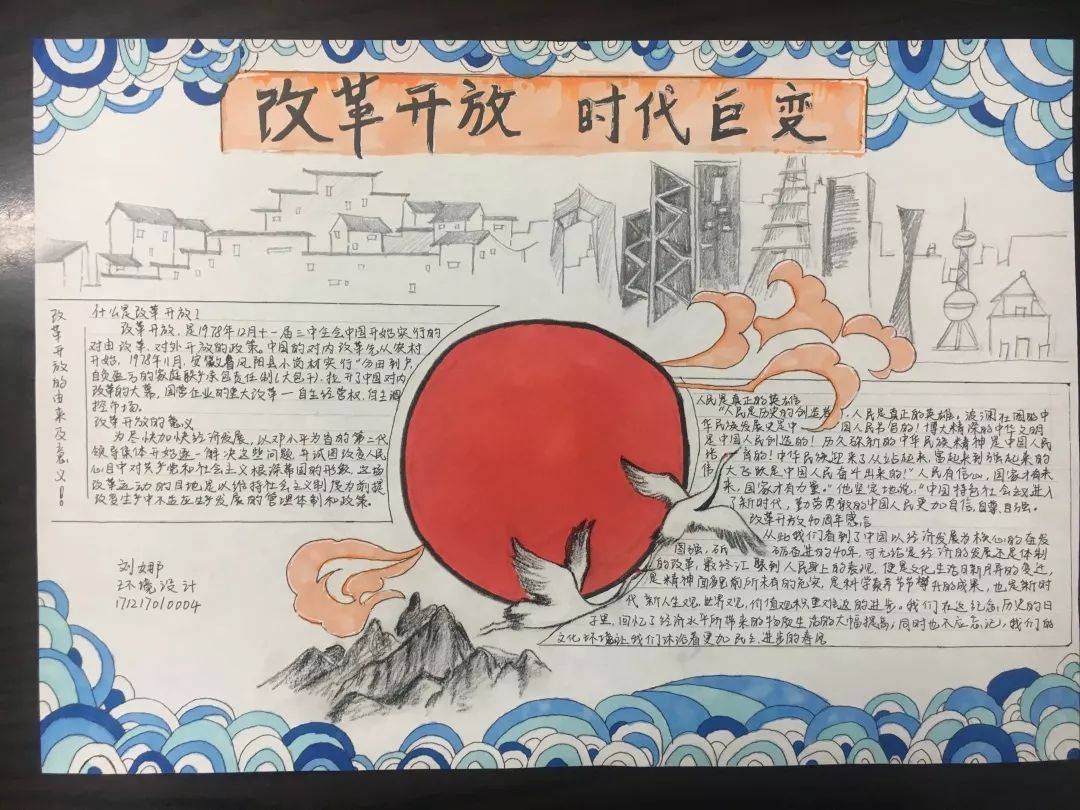 改革开放 时代巨变
改革开放的由来及意义!!
什么是改革开放?
改革开放,是1978年12月十一届三中全会中国开始实行的
对内改革、对外开放的政策。中国的对内改革先从农村
开始,1978年11月,安徽省凤阳县小岗村实行“分田到户,
自负盈亏的家庭联产承包责任制(大包干),拉开了中国对内
改革的大幕,国营企业的重大改革一自主经营权,自主调
控市场。
改革开放的意义
为尽快加快经济发展,以邓小平为首的第二代
领导集体开始逐一解决这些问题,并试图改变人民
心目中对共产党和社会主义根深蒂固的形象,这场
改革运动的目地是以维持社会主义制度为前提
改变生产中不适应生产发展的管理体制和政策。
人民是真正的英雄
“人民是历史的创造者,人民是真正的英雄。波澜壮阔的中
华民族发展史是中国人民书写的!博大精深的中华文明
是中国人民创造的!历久弥新的中华民族精神是中国人民
培育的!中华民族迎来了从站起来,富起来到强起来的
伟大飞跃是中国人民奋斗出来的!”人民有信心,国家才有未
来,国家才有力量。”他坚定地说,“中国特色社会主义进入
了新时代,勤劳勇敢的中国人民更加自信,自尊,自强。
改革开放40周年感言
从此我们看到了中国以经济发展为核心的奋发
图强,砥砺奋进的40年,可无论是经济的发展还是体制
的改革,最终汇聚到人民身上的表现,便是文化生活日新月异的变迁,
是精神面貌前所未有的充实,是科学素养节节攀升的成果,也是新时
代新人生观,世界观,价值观的进步。我们在这纪念历史的日
子里,回忆了经济水平所带来的物质生活的大幅提高,同时也不应忘记,我们的
文化环境让我们沐浴着更加民主,进步的春风
刘娜
环境设计
171217010004